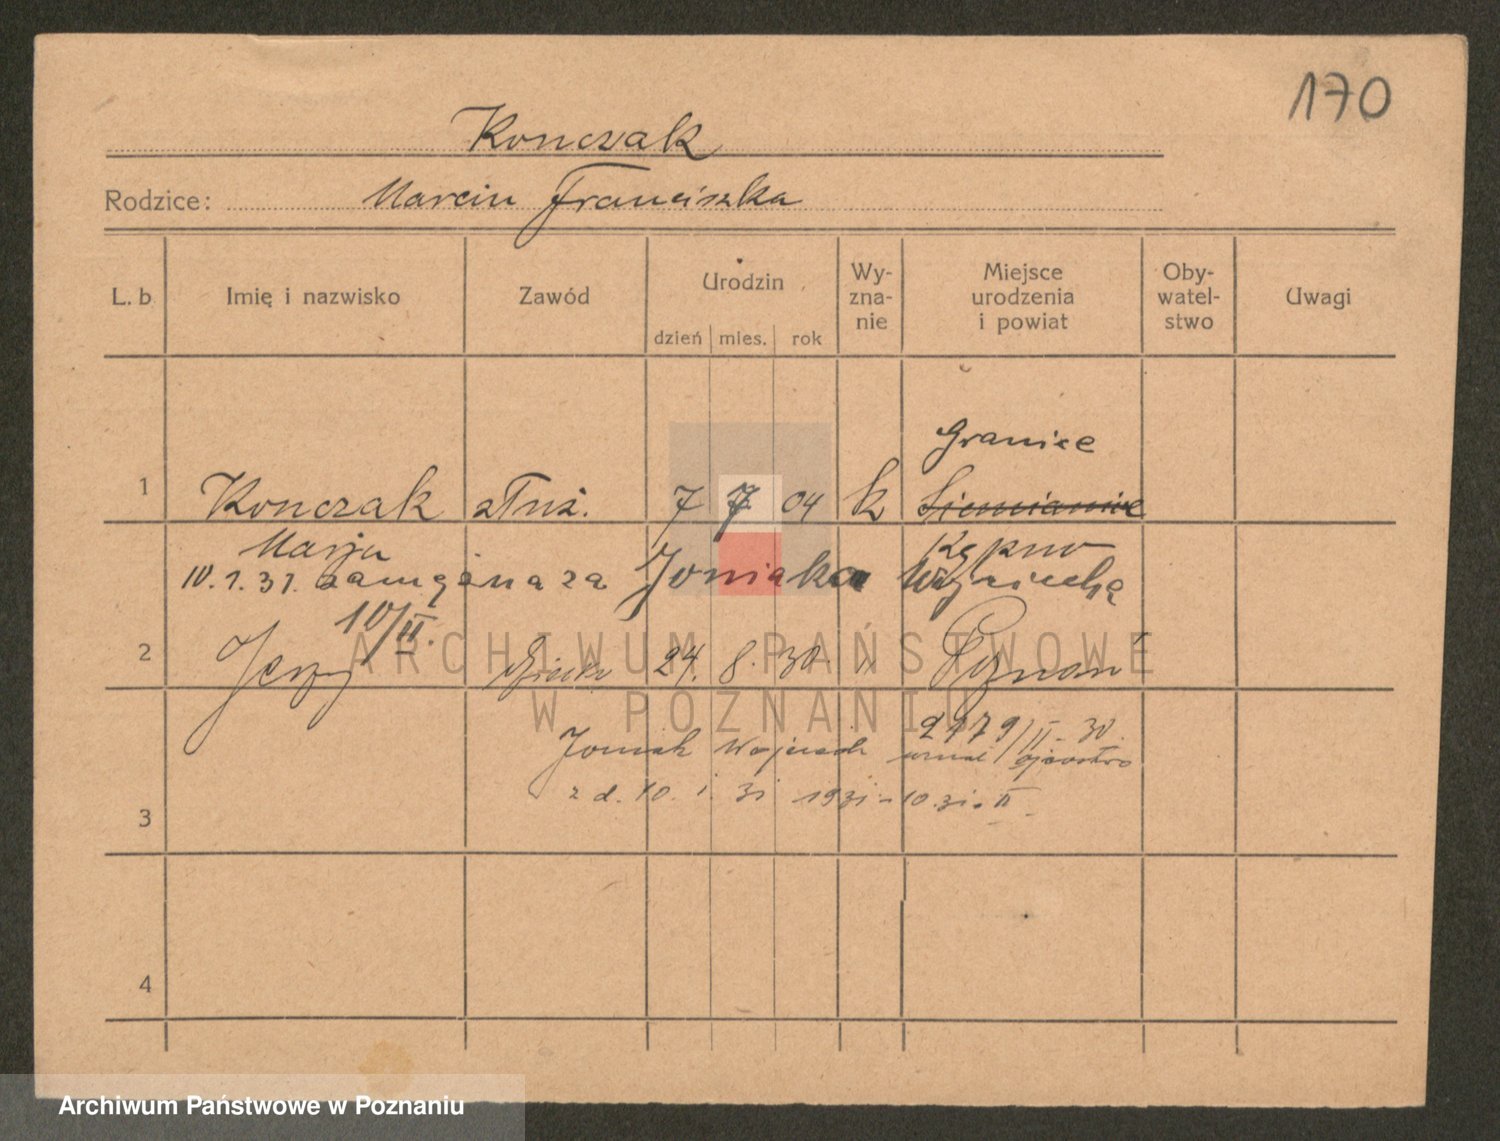 170
Konczak
Rodzice: Marcin Franciszka
L. b Imię i nazwisko Zawód Urodzin dzień mies. rok Wy-zna-nie Miejsce urodzenia i powiat Oby-watel-stwo Uwagi
Granice
1 Konczak służ. 7 7 04 k Siemianice
Marja Kępno
10.1.31. zamężna za Joniaka Wojciecha
10/II.
2 Jerzy dziecko 24. 8. 30. " Poznań
2179/II-30.
Joniak Wojciech uznał ojcostwo
z d. 10. 1. 31 1931-10.31-II
3
4
ARCHIWUM PAŃSTWOWE
W POZNANIU
Archiwum Państwowe w Poznaniu